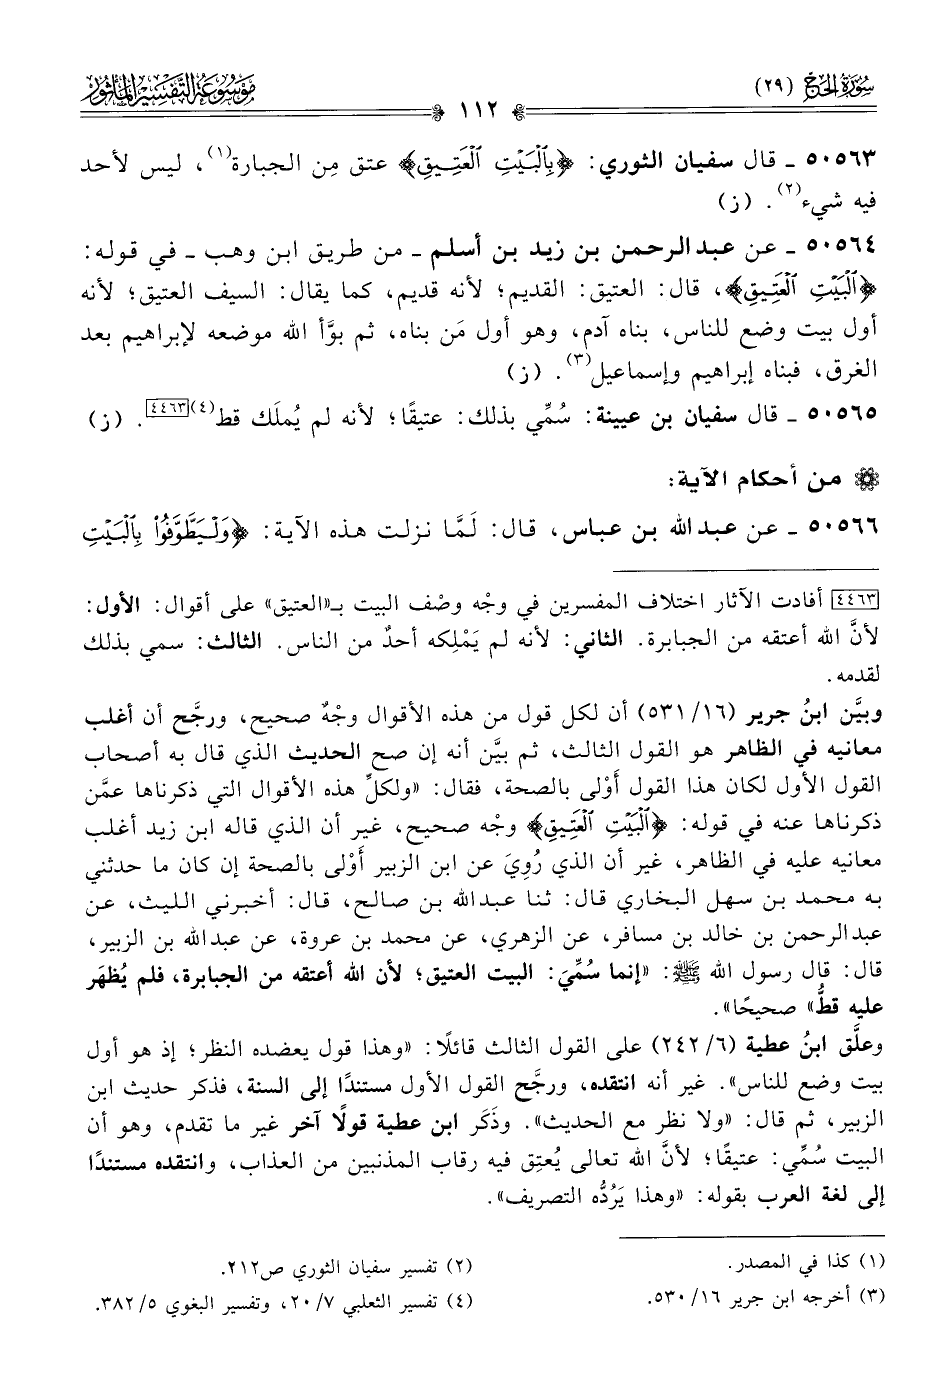 سُورَةُ الحَجّ (٢٩)
١١٢
مَوْسُوعَة التَّفْسِيْر المَأْثُور
٥٠٥٦٣ ـ قال سفيان الثوري: ﴿بِٱلْبَيْتِ ٱلْعَتِيقِ﴾ عتق مِن الجبارة(١)، ليس لأحد
فيه شيء(٢). (ز)
٥٠٥٦٤ ـ عن عبد الرحمن بن زيد بن أسلم ـ من طريق ابن وهب ـ في قوله:
﴿ٱلْبَيْتِ ٱلْعَتِيقِ﴾، قال: العتيق: القديم؛ لأنه قديم، كما يقال: السيف العتيق؛ لأنه
أول بيت وضع للناس، بناه آدم، وهو أول مَن بناه، ثم بوَّأ الله موضعه لإبراهيم بعد
الغرق، فبناه إبراهيم وإسماعيل(٣). (ز)
٥٠٥٦٥ ـ قال سفيان بن عيينة: سُمِّي بذلك: عتيقًا؛ لأنه لم يُملَك قط(٤)[٤٤٦٣]. (ز)
من أحكام الآية:
٥٠٥٦٦ ـ عن عبد الله بن عباس، قال: لَمَّا نزلت هذه الآية: ﴿وَلْيَطَّوَّفُوا۟ بِٱلْبَيْتِ
[٤٤٦٣] أفادت الآثار اختلاف المفسرين في وجْه وصْف البيت بـ«العتيق» على أقوال: الأول:
لأنَّ الله أعتقه من الجبابرة. الثاني: لأنه لم يَمْلِكه أحدٌ من الناس. الثالث: سمي بذلك
لقدمه.
وبيَّن ابنُ جرير (١٦/ ٥٣١) أن لكل قول من هذه الأقوال وجْهٌ صحيح، ورجَّح أن أغلب
معانيه في الظاهر هو القول الثالث، ثم بيَّن أنه إن صح الحديث الذي قال به أصحاب
القول الأول لكان هذا القول أَوْلى بالصحة، فقال: «ولكلِّ هذه الأقوال التي ذكرناها عمَّن
ذكرناها عنه في قوله: ﴿ٱلْبَيْتِ ٱلْعَتِيقِ﴾ وجْه صحيح، غير أن الذي قاله ابن زيد أغلب
معانيه عليه في الظاهر، غير أن الذي رُوِيَ عن ابن الزبير أَوْلى بالصحة إن كان ما حدثني
به محمد بن سهل البخاري قال: ثنا عبد الله بن صالح، قال: أخبرني الليث، عن
عبد الرحمن بن خالد بن مسافر، عن الزهري، عن محمد بن عروة، عن عبد الله بن الزبير،
قال: قال رسول الله ﷺ: «إنما سُمِّيَ: البيت العتيق؛ لأن الله أعتقه من الجبابرة، فلم يُظهَر
عليه قطُّ» صحيحًا».
وعلَّق ابنُ عطية (٦/ ٢٤٢) على القول الثالث قائلًا: «وهذا قول يعضده النظر؛ إذ هو أول
بيت وضع للناس». غير أنه انتقده، ورجَّح القول الأول مستندًا إلى السنة، فذكر حديث ابن
الزبير، ثم قال: «ولا نظر مع الحديث». وذَكَر ابن عطية قولًا آخر غير ما تقدم، وهو أن
البيت سُمِّي: عتيقًا؛ لأنَّ الله تعالى يُعتِق فيه رقاب المذنبين من العذاب، وانتقده مستندًا
إلى لغة العرب بقوله: «وهذا يَرُدُّه التصريف».
(١) كذا في المصدر.
(٢) تفسير سفيان الثوري ص٢١٢.
(٣) أخرجه ابن جرير ١٦/ ٥٣٠.
(٤) تفسير الثعلبي ٧/ ٢٠، وتفسير البغوي ٥/ ٣٨٢.